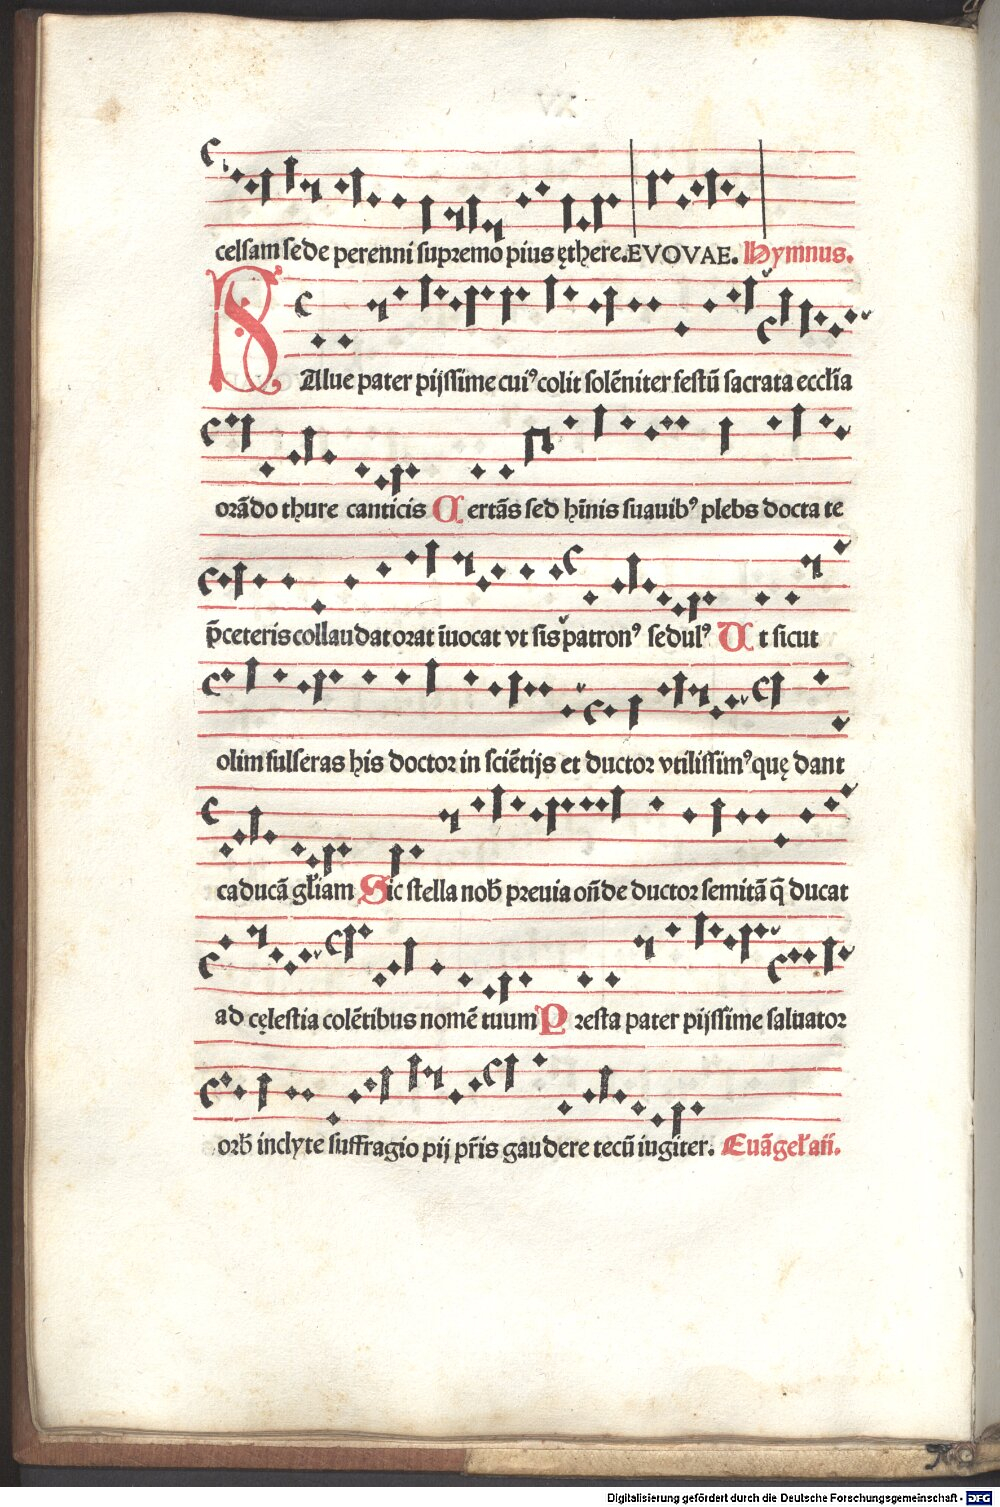 celsam sede perenni supremo pius ęthere. EVOVAE. Hymnus.
SAlue pater pijssime cuiꝰ colit solẽniter festũ sacrata eccłia
orãdo thure canticis Certãs sed hĩnis suauibꝰ plebs docta te
p̃ceteris collaudat orat ĩuocat vt sis patronꝰ sedulꝰ Ut sicut
olim fulseras his doctor in sciẽtijs et ductor vtilissimꝰ quę dant
caducã głiam Sic stella nob̃ preuia on̄de ductor semitã q̃ ducat
ad cęlestia colẽtibus nomẽ tuum Presta pater pijssime saluator
orb̃ inclyte suffragio pij pr̃is gaudere tecũ iugiter. Euãgełañ.
Digitalisierung gefördert durch die Deutsche Forschungsgemeinschaft - DFG